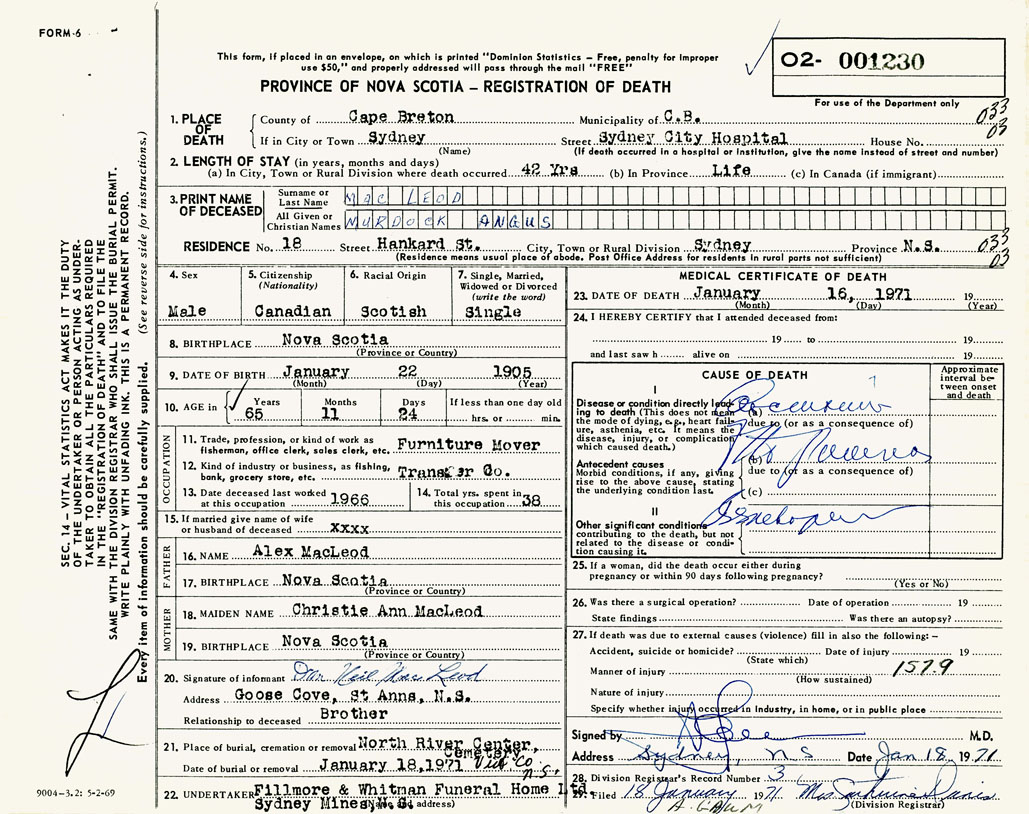 FORM-6
This form, if placed in an envelope, on which is printed "Dominion Statistics — Free, penalty for improper
use $50," and properly addressed will pass through the mail "FREE"
PROVINCE OF NOVA SCOTIA — REGISTRATION OF DEATH
O2- 001230
For use of the Department only
1. PLACE OF DEATH
County of Cape Breton Municipality of C.B. 033
If in City or Town Sydney Street Sydney City Hospital House No. 03
(Name) (If death occurred in a hospital or institution, give the name instead of street and number)
2. LENGTH OF STAY (in years, months and days)
(a) In City, Town or Rural Division where death occurred 42 Yrs (b) In Province Life (c) In Canada (if immigrant)
3. PRINT NAME OF DECEASED
Surname or Last Name MAC LEOD
All Given or Christian Names MURDOCK ANGUS
RESIDENCE No. 18 Street Hankard St. City, Town or Rural Division Sydney Province N.S. 033
(Residence means usual place of abode. Post Office Address for residents in rural parts not sufficient) 03
4. Sex
Male
5. Citizenship
(Nationality)
Canadian
6. Racial Origin
Scotish
7. Single, Married,
Widowed or Divorced
(write the word)
Single
8. BIRTHPLACE Nova Scotia
(Province or Country)
9. DATE OF BIRTH January 22 1905
(Month) (Day) (Year)
10. AGE in
Years Months Days If less than one day old
65 11 24 hrs. or min.
OCCUPATION
11. Trade, profession, or kind of work as
fisherman, office clerk, sales clerk, etc. Furniture Mover
12. Kind of industry or business, as fishing,
bank, grocery store, etc. Transfer Co.
13. Date deceased last worked
at this occupation 1966
14. Total yrs. spent in
this occupation 38
15. If married give name of wife
or husband of deceased xxxx
FATHER
16. NAME Alex MacLeod
17. BIRTHPLACE Nova Scotia
(Province or Country)
MOTHER
18. MAIDEN NAME Christie Ann MacLeod
19. BIRTHPLACE Nova Scotia
(Province or Country)
20. Signature of informant Dan Neil Mac Leod
Address Goose Cove, St Anns, N.S.
Relationship to deceased Brother
21. Place of burial, cremation or removal North River Center,
Cemetery
Date of burial or removal January 18, 1971 Vict Co. N.S.
22. UNDERTAKER Fillmore & Whitman Funeral Home Ltd.
Sydney Mines, N.S.
(Name and address)
MEDICAL CERTIFICATE OF DEATH
23. DATE OF DEATH January 16, 1971 19
(Month) (Day) (Year)
24. I HEREBY CERTIFY that I attended deceased from:
19 to 19
and last saw h alive on 19
CAUSE OF DEATH
Approximate interval between onset and death
I
Disease or condition directly leading to death (This does not mean
the mode of dying, e.g., heart failure, asthenia, etc. It means the
disease, injury, or complication
which caused death.)
(a)
due to (or as a consequence of)
Antecedent causes
Morbid conditions, if any, giving
rise to the above cause, stating
the underlying condition last.
(b)
due to (or as a consequence of)
(c)
II
Other significant conditions
contributing to the death, but not
related to the disease or condition causing it.
25. If a woman, did the death occur either during
pregnancy or within 90 days following pregnancy?
(Yes or No)
26. Was there a surgical operation? Date of operation 19
State findings Was there an autopsy?
27. If death was due to external causes (violence) fill in also the following: —
Accident, suicide or homicide? Date of injury 19
(State which)
Manner of injury 157.9
(How sustained)
Nature of injury
Specify whether injury occurred in Industry, in home, or in public place
Signed by M.D.
Address Sydney, N S Date Jan 18 1971
28. Division Registrar's Record Number 3
29. Filed 18 January 1971
(Division Registrar)
SEC. 14 — VITAL STATISTICS ACT MAKES IT THE DUTY
OF THE UNDERTAKER OR PERSON ACTING AS UNDER-
TAKER TO OBTAIN ALL THE PARTICULARS REQUIRED
IN THE "REGISTRATION OF DEATH" AND TO FILE THE
SAME WITH THE DIVISION REGISTRAR WHO SHALL ISSUE THE BURIAL PERMIT.
WRITE PLAINLY WITH UNFADING INK. THIS IS A PERMANENT RECORD.
Every item of information should be carefully supplied. (See reverse side for instructions.)
9004-3.2: 5-2-69